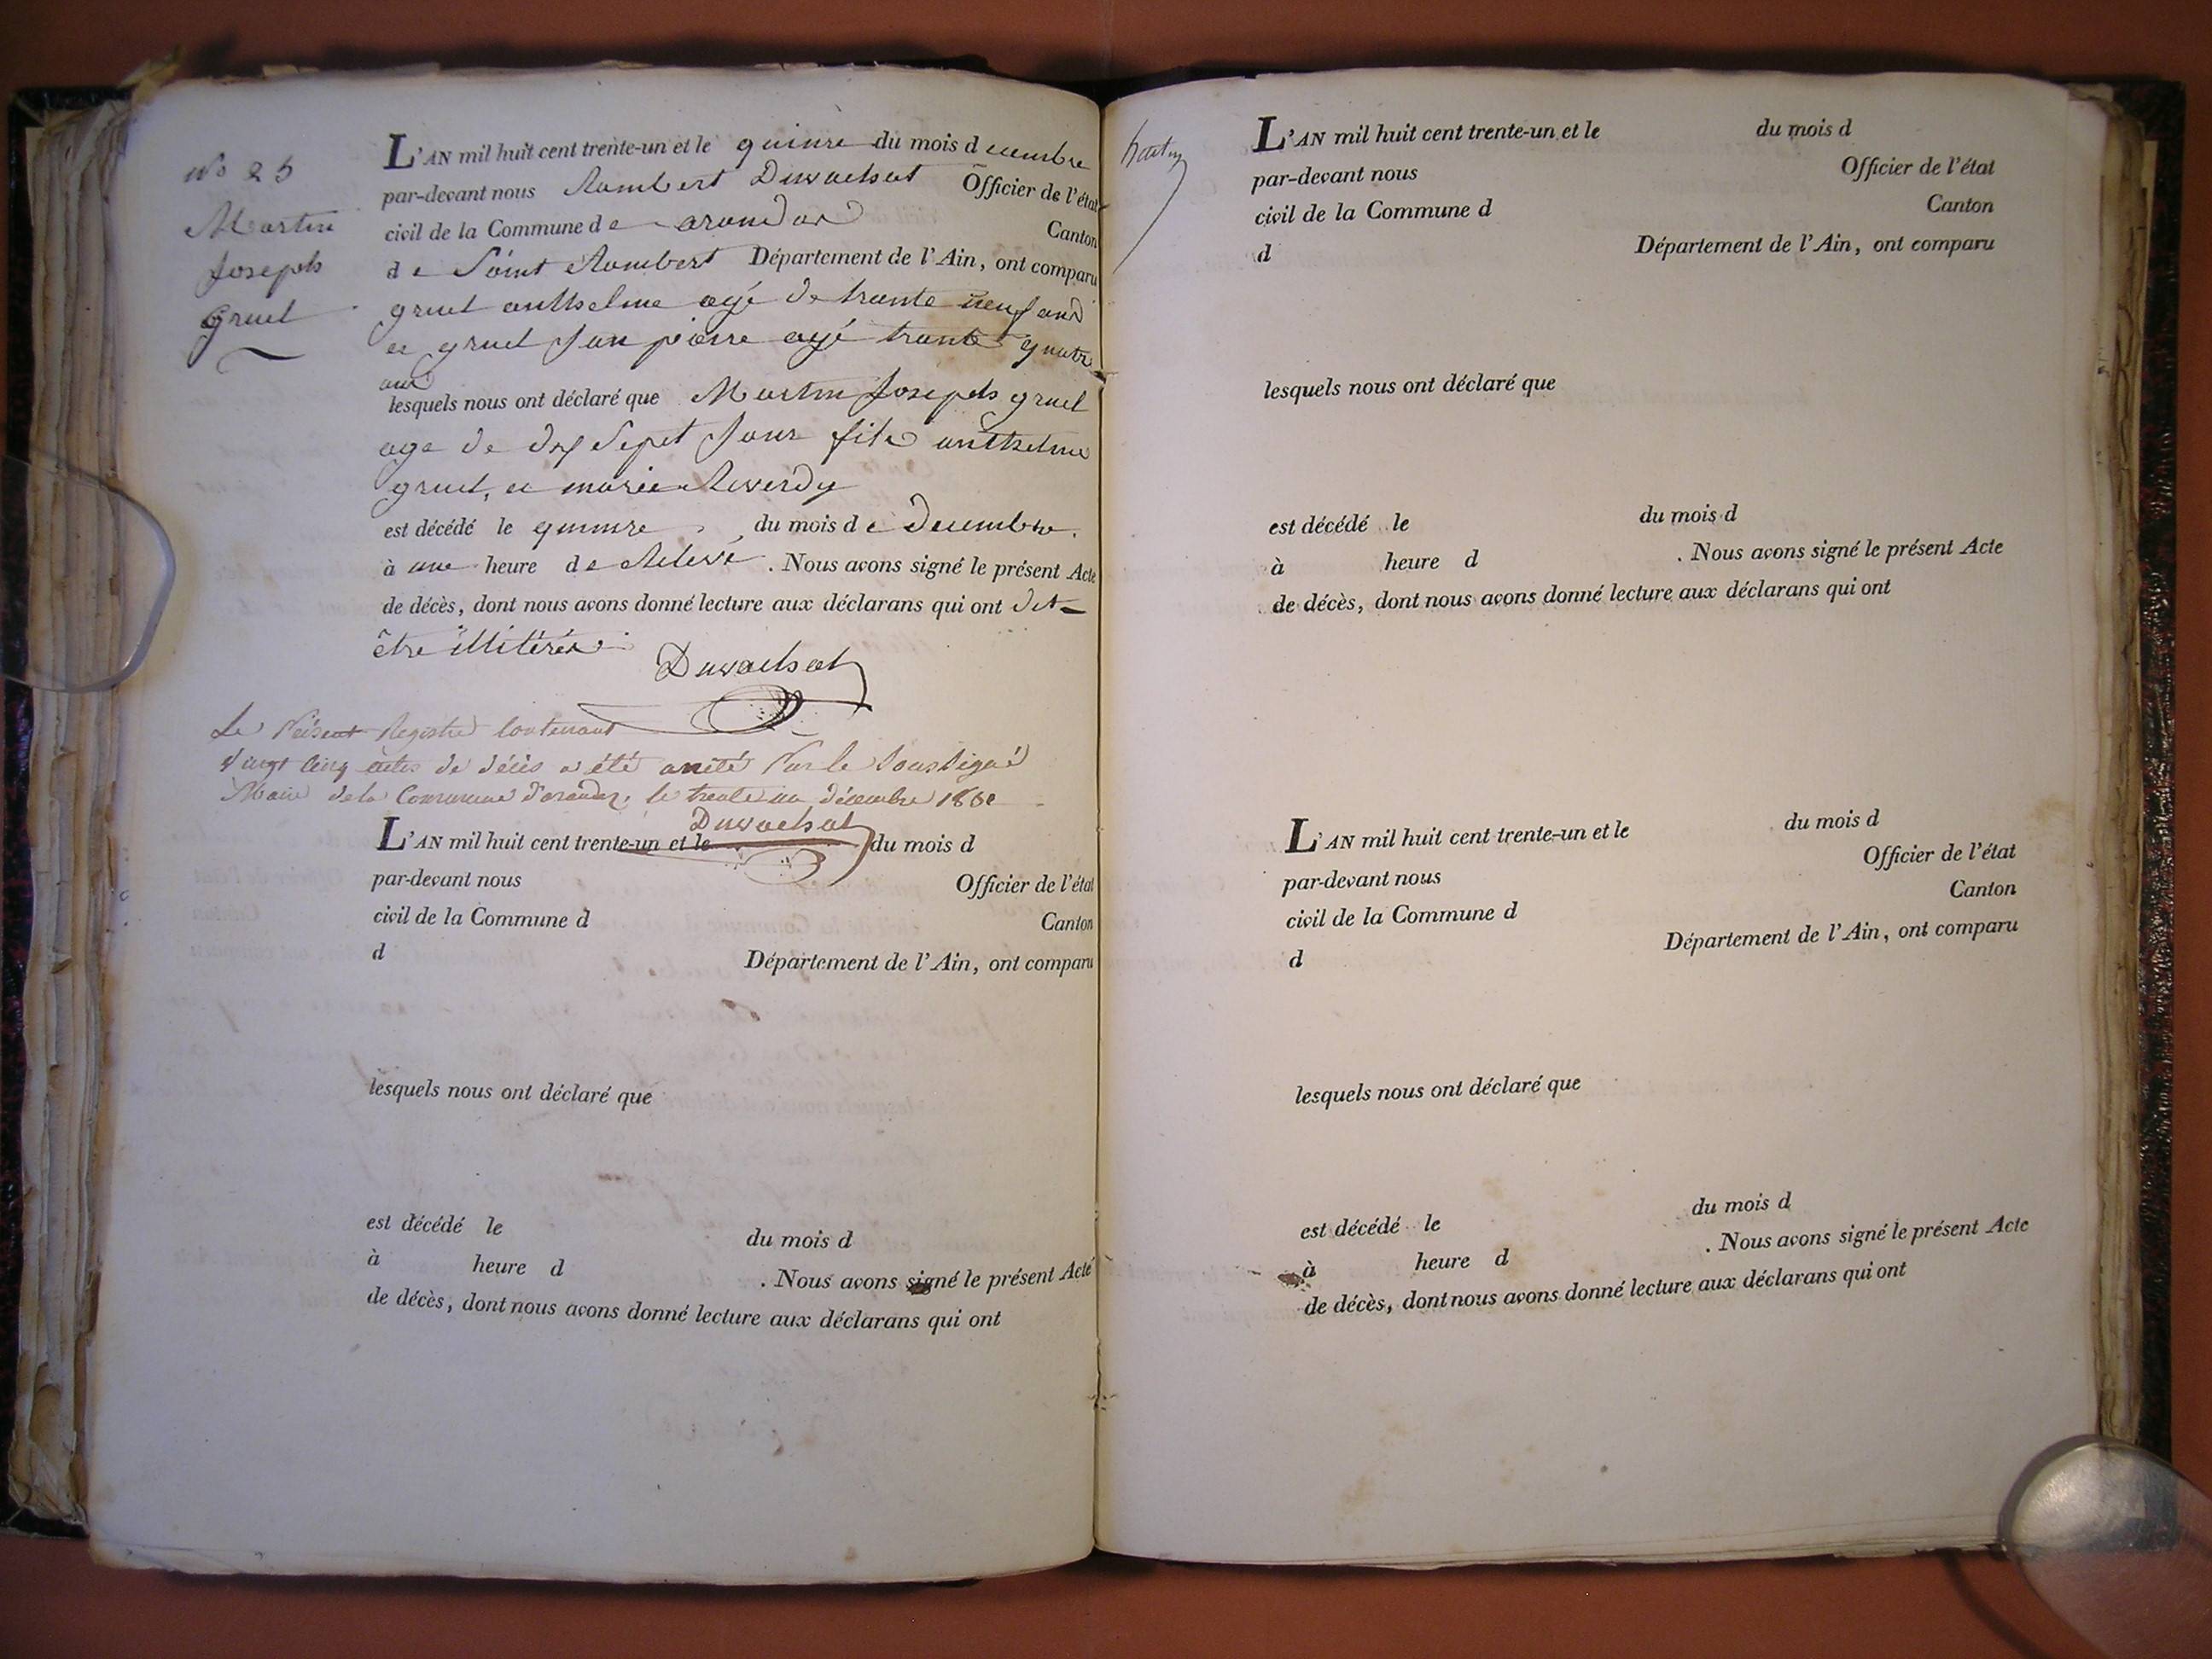 No 25
Martin
Joseph
gruel
L'AN mil huit cent trente-un et le quinze du mois d ecembre
par-devant nous Rambert Duvachat Officier de l'état
civil de la Commune de arandas Canton
de Saint Rambert Département de l'Ain, ont comparu
gruel anthelme agé de trante neuf ans
et gruel Jan pierre agé trante quatre
ans
lesquels nous ont déclaré que Martin Joseph gruel
age de dix Sept Jour fils anthelme
gruel, et marie Reverdy
est décédé le quinze du mois de decembre.
à une heure de Relevé. Nous avons signé le présent Acte
de décès, dont nous avons donné lecture aux déclarans qui ont dit
être illitérés
Duvachat
Le Présent Registre Contenant
vingt Cinq actes de décès a été areté Par le Sousigné
Maire de la Commune d'arandas, le trente un décembre
Duvachat
L'AN mil huit cent trente-un et le du mois d
par-devant nous Officier de l'état
civil de la Commune d Canton
d Département de l'Ain, ont comparu
lesquels nous ont déclaré que
est décédé le du mois d
à heure d . Nous avons signé le présent Acte
de décès, dont nous avons donné lecture aux déclarans qui ont
L'AN mil huit cent trente-un et le du mois d
par-devant nous Officier de l'état
civil de la Commune d Canton
d Département de l'Ain, ont comparu
lesquels nous ont déclaré que
est décédé le du mois d
à heure d . Nous avons signé le présent Acte
de décès, dont nous avons donné lecture aux déclarans qui ont
L'AN mil huit cent trente-un et le du mois d
par-devant nous Officier de l'état
civil de la Commune d Canton
d Département de l'Ain, ont comparu
lesquels nous ont déclaré que
est décédé le du mois d
à heure d . Nous avons signé le présent Acte
de décès, dont nous avons donné lecture aux déclarans qui ont